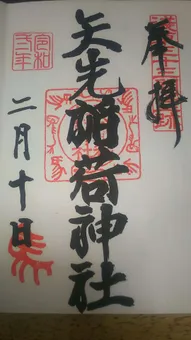 奉拝
矢先稲荷神社
令和
弐年
二月十日